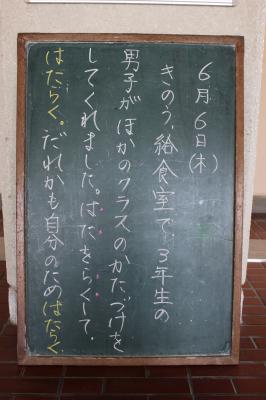 6月6日(木)
きのう、給食室で、3年生の
男子がほかのクラスのかたづけを
してくれました。はたをらくして、
はたらく。だれかも自分のためはたらく